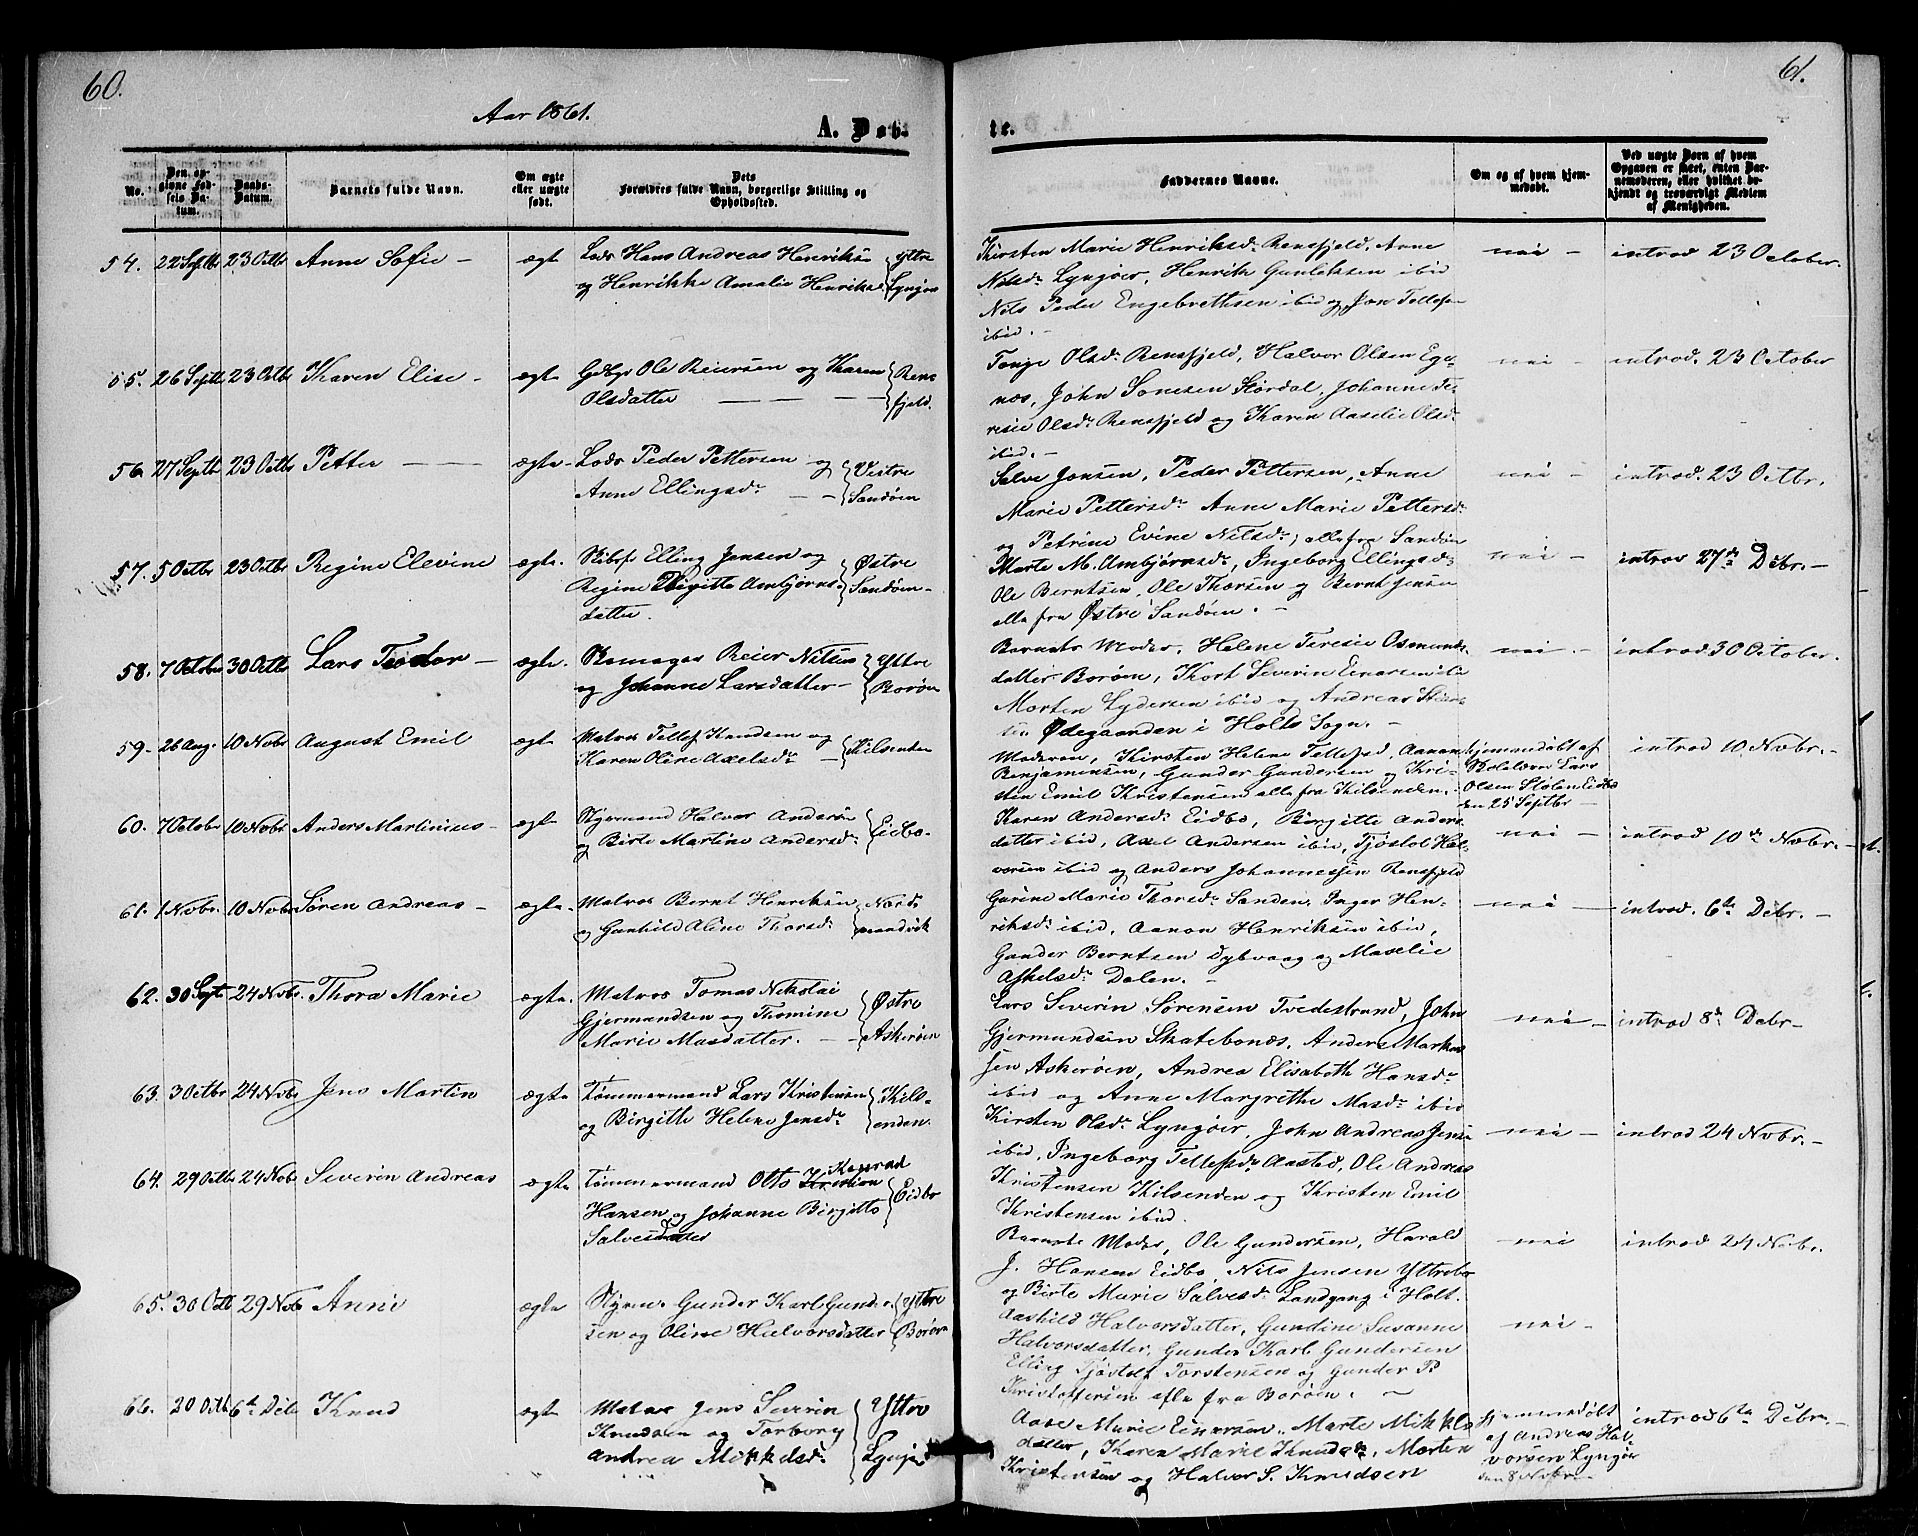 60.
61.
Aar 1861.
A. Døb-
te.
No.
Den op-
givne Fød-
sels Da-
tum.
Daabs-
Datum.
Barnets fulde Navn.
Om ægte
eller uægte
født.
Dets
Forældres fulde Navn, borgerlige Stilling og
Opholdssted.
Faddernes Navne.
Om og af hvem hjem-
medøbt.
Ved uægte Børn af hvem
Opgaven er skeet, enten Bar-
nemoderen, eller hvilket be-
kjendt og troværdigt Medlem
af Menigheden.
54. 22 Septbr 23 Octbr Anne Sofie - ægt Lods Hans Andreas Henriks
og Henrikke Amalie Henriksd. Yttre Lyngøer
Kirsten Marie Henriksdr. Rensfjeld, Anne
Nilsdr. Lyngøer, Henrik Gunliksen ibid
Nils Peder Engebrethsen ibid og Jon Tellefsen
ibid. -
nei - introd 23 October.
55. 26 Septbr 23 Octbr Karen Elise - ægte Gdbgr Ole Reiersen og Karen
Olsdatter - - - Rens fjeld.
Tonje Olsdr. Rensfjeld, Halvor Olsen Ege-
næs, John Sonesen Stordal, Johanne Te-
resie Olsdr. Rensfjeld og Karen Aaselie Olsdr.
ibid. -
nei - introd. 23 October
56. 27 Septb 23 Octbr Petter - - ægte. Lods Peder Pettersen og
Anne Ellingsdr. - - Vestre Sandøen
Salve Jonsen, Peder Pettersen, Anne
Marie Pettersdr. Anne Marie Pettersdr.
og Petrine Evine Nilsdr, alle fra Sandøen
nei - introd. 23 Octbr.
57. 5 Octbr 23 Octbr Regine Elevine ægte. Skibsf Elling Jensen og
Regine Birgitte Ambjørns-
datter. Østre Sandøen -
Marte M. Ambjørnsdr, Ingeborg Ellingsdr.
Ole Berntsen, Ole Thorsen og Bernt Jensen
alle fra Østre Sandøen. -
nei - introd 27de Debr. -
58. 7 Octobr 30 Octbr Lars Teodor - ægte. Reier Nilsen
og Johanne Larsdatter - Yttre Borøen
Barnets Moder, Helene Teresie Osmunds-
datter Borøen, Kort Severin Einarsen ibid
Morten Lydersen ibid og Andreas
Ødegaarden i Holts Sogn. -
nei. - introd. 30 October.
59. 26 Aug. 10 Nobr August Emil ægt Matros Tellef Knudsen og
Karen Oline Axelsdr. - Kilsenden
Moderen, Kirsten Helene Tellefsd, Aanon
Benjaminsen, Gunder Gundersen og Kri-
sten Emil Kristensen alle fra Kilsenden. -
hjemmedøbt af
Skolelærer Lars
Olsen Stølen Eidbo
den 25 Septbr -
introd 10 Nobr. -
60. 7 Octobr 10 Nobr Anders Martinius - ægte Styrmand Halvor Andersen
og Birte Martine Andersdr. Eidbo.
Karen Andersdr. Eidbo, Birgitte Anders-
datter ibid, Axel Andersen ibid, Tjøstol Hal-
vorsen ibid og Anders Johannessen Rensfjeld
nei - introd 10de Nobr. -
61. 1 Nobr. 10 Nobr Søren Andreas - ægte. Matros Bernt Henriksen
og Gunhild Aline Thorsdr. Nord- mandvik
Gurine Marie Thorsdr. Sanden, Inger Hen-
riksdr. ibid, Aanon Henriksen ibid,
Gunder Berntsen Dybvaag og Maselie
Askelsdr. Dalen. -
nei - introd. 6te Debr. -
62. 30 Sept. 24 Nobr. Thora Marie ægte. Matros Tomas Nikolai
Gjermundsen og Thomine
Marie Masdatter. - - Østre Askerøen
Lars Severin Sørensen Tvedestrand, John
Gjermundsen Skatebonæs, Anders Markus-
sen Askerøen, Andrea Elisabeth Hansdr.
ibid og Anne Margrethe Masdr. ibid
nei - introd 8de Debr -
63. 3 Octbr 24 Nobr Jens Martin ægte Tømmermand Lars Kristensen
og Birgitte Helene Jensdr. Kils- enden.
Kirsten Olsdr. Lyngøer, John Andreas Jensen
ibid, Ingeborg Tellefsdr. Aasted, Ole Andreas
Kristensen Kilsenden og Kristen Emil
Kristensen ibid.
nei - introd 24 Nobr. -
64. 29 Octbr 24 Nobr Severin Andreas ægte Tømmermand Otto Kristian Konrad
Hansen og Johanne Birgitte
Salvesdatter Eidbo
Barnets Moder, Ole Gundersen, Harald
J. Hansen Eidbo, Nils Jensen Yttrebø
og Birte Marie Salvesdr. Landgang i Holt.
nei introd 24 Nobr.
65. 30 Octb 29 Nob Anne ægte Styrm. Gunder Karl Gunder-
sen og Oline Halvorsdatter Yttre Borøen
Aashild Halvorsdatter, Gundine Susanne
Halvorsdatter, Gunder Karl Gundersen
Elling Tjøstolf Torstensen og Gunder P.
Kristoffersen alle fra Borøen. -
nei -
66. 20 Octb 6te Debr Knud ægte Matros Jens Severin
Knudsen og Torborg
Andrea Mikkelsdr. Yttre Lyngør
Aase Marie Einersen, Marte Mikkels-
datter, Karen Marie Knudsdr, Morten
Kristensen og Halvor S. Knudsen
hjemmedøbt
af Andreas Hal-
vorsen Lyngør
den 8 Nobr -
introd 6te Debr. -